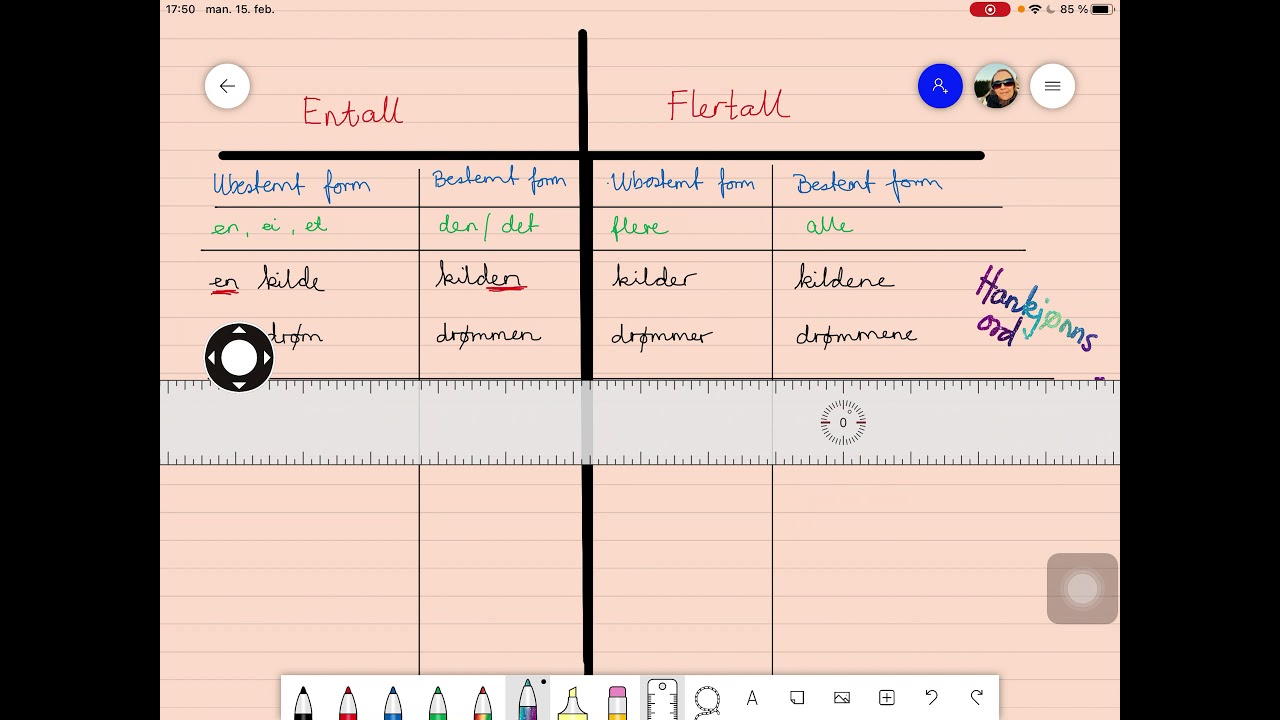 17:50 man. 15. feb. 85 %
Entall Flertall
Ubestemt form Bestemt form Ubestemt form Bestemt form
en, ei, et den/det flere alle
en kilde kilden kilder kildene
drøm drømmen drømmer drømmene
Hankjønns
ord
0
A